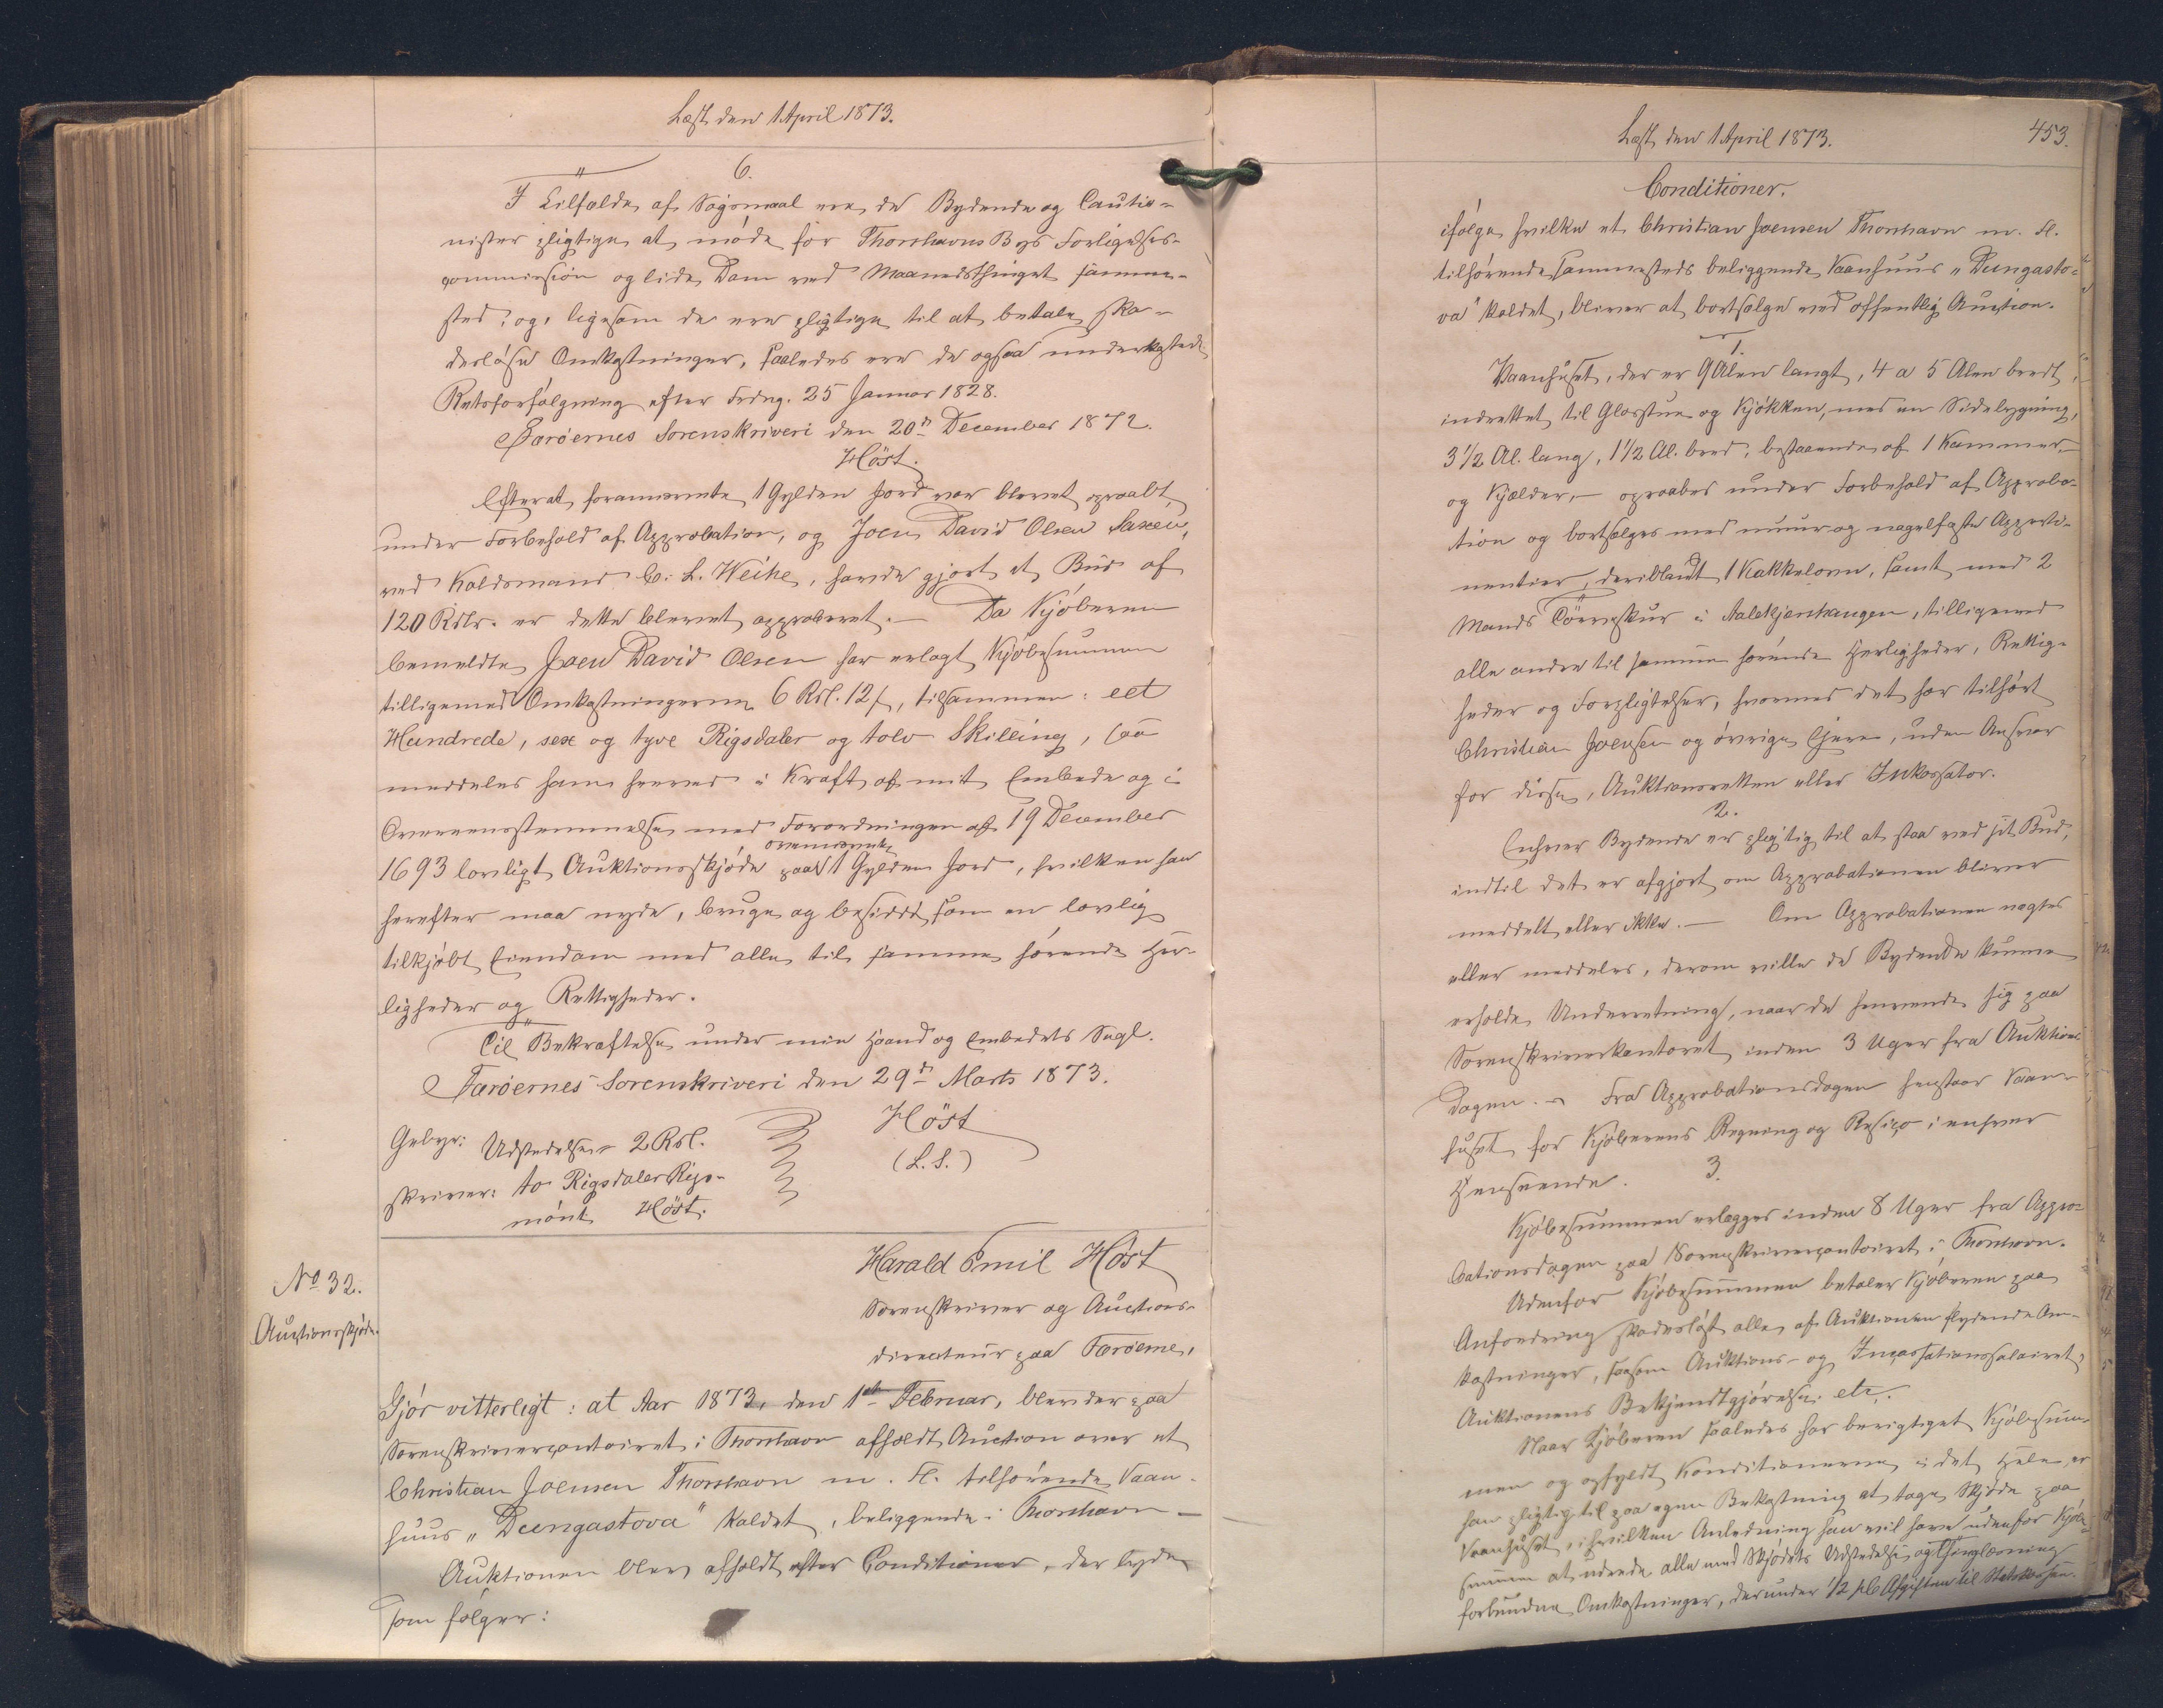 Læst den 1 April 1873.
6.
I Tilfælde af Søgsmaal ere de Bydende og Cautio-
nister pligtige at møde for Thorshavns Byes Forligelses-
commission og lide Dom ved Maanedsthinget samme-
sted, og, ligesom de ere pligtige til at betale ska-
desløse Omkostninger, saaledes ere de ogsaa underkastede
Retsforfølgning efter Frdng. 25 Januar 1828.
Færøernes Sorenskriveri den 20de December 1872.
Høst.
Efterat forannævnte 1 Gylden Jord var blevet opraabt
under Forbehold af Approbation, og Joen David Olsen Saxen,
ved Koldsmand C. L. Weihe, havde gjort et Bud af
120 Rdlr. er dette blevet approberet. — Da Kjøberen
bemeldte Joen David Olsen har erlagt Kjøbesummen
tilligemed Omkostningerne 6 Rdl. 12 s, tilsammen: eet
Hundrede, sex og tyve Rigsdaler og tolv Skilling, saa
meddeles ham herved i Kraft af mit Embede og i
Overeensstemmelse med Forordningen af 19 December
ovennævnte
1693 lovligt Auktionsskjøde paa 1 Gylden Jord, hvilken han
herefter maa nyde, bruge og besidde som en lovlig
tilkjøbt Eiendom med alle til samme hørende Her-
ligheder og Rettigheder.
Til Bekræftelse under min Haand og Embedets Segl.
Færøernes Sorenskriveri den 29de Marts 1873.
Høst
(L. S.)
Gebyr: Udstedelsen 2 Rdl.
skriver: to Rigsdaler Rigs-
mønt Høst.
No 32.
Auctionsskjøde.
Harald Emil Høst
Sorenskriver og Auctions-
directeur paa Færøerne,
Gjør vitterligt: at Aar 1873, den 1ste Februar, blev der paa
Sorenskrivercontoiret i Thorshavn afholdt Auction over et
Christian Joensen Thorshavn m. Fl. tilhørende Vaan-
huus "Dungastova" kaldet, beliggende i Thorshavn —
Auktionen blev afholdt efter Conditioner, der lyde
som følger:
Læst den 1 April 1873.
453.
Conditioner.
ifølge hvilke et Christian Joensen Thorshavn m. Fl.
tilhørende sammesteds beliggende Vaanhuus "Dungasto-
va" kaldet, bliver at bortsælge ved offentlig Auction.
1.
Vaanhuset, der er 9 Alen langt, 4 a 5 Alen bredt,
indrettet til Glasstue og Kjøkken, med en Sidebygning,
3 1/2 Al. lang, 1 1/2 Al. bred, bestaaende af 1 Kammer,
og Kjælder, — opraabes under Forbehold af Approba-
tion og bortsælges med muur og nagelfaste Apperti-
nentier, deriblandt 1 Kakkelovn, samt med 2
Mands Tørveskur i Aalekjærhaugen, tilligemed
alle andre til samme hørende Herligheder, Rettig-
heder og Forpligtelser, hvormed det har tilhørt
Christian Joensen og øvrige Ejere, uden Ansvar
for disse, Auktionsretten eller Inkassator.
2.
Enhver Bydende er pligtig til at staa ved sit Bud,
indtil det er afgjort om Approbationen bliver
meddelt eller ikke. — Om Approbationen nægtes
eller meddeles, derom ville de Bydende kunne
erholde Underretning, naar de henvende sig paa
Sorenskriverkontoret inden 3 Uger fra Auktions
Dagen. — Fra Approbationsdagen henstaar Vaan-
huset for Kjøberens Regning og Risico i enhver
Henseende.
3.
Kjøbesummen erlægges inden 8 Uger fra Appro-
bationsdagen paa Sorenskrivercontoiret i Thorshavn.
Udenfor Kjøbesummen betaler Kjøberen paa
Anfordring skadesløst alle af Auktionen flydende Om-
kostninger, saasom Auktions- og Incassationssalairet,
Auktionens Bekjendtgjørelse etc.
Naar Kjøberen saaledes har berigtiget Kjøbesum-
men og opfyldt Konditionerne i det Hele, er
han pligtig til paa egen Bekostning at tage Skjøde paa
Vaanhuset, i hvilken Anledning han vil have udenfor Kjøbe-
summen at udrede alle med Skjødets Udstedelse og Thinglæsning
forbundne Omkostninger, derunder 1/2 pC Afgiften til Statskassen.